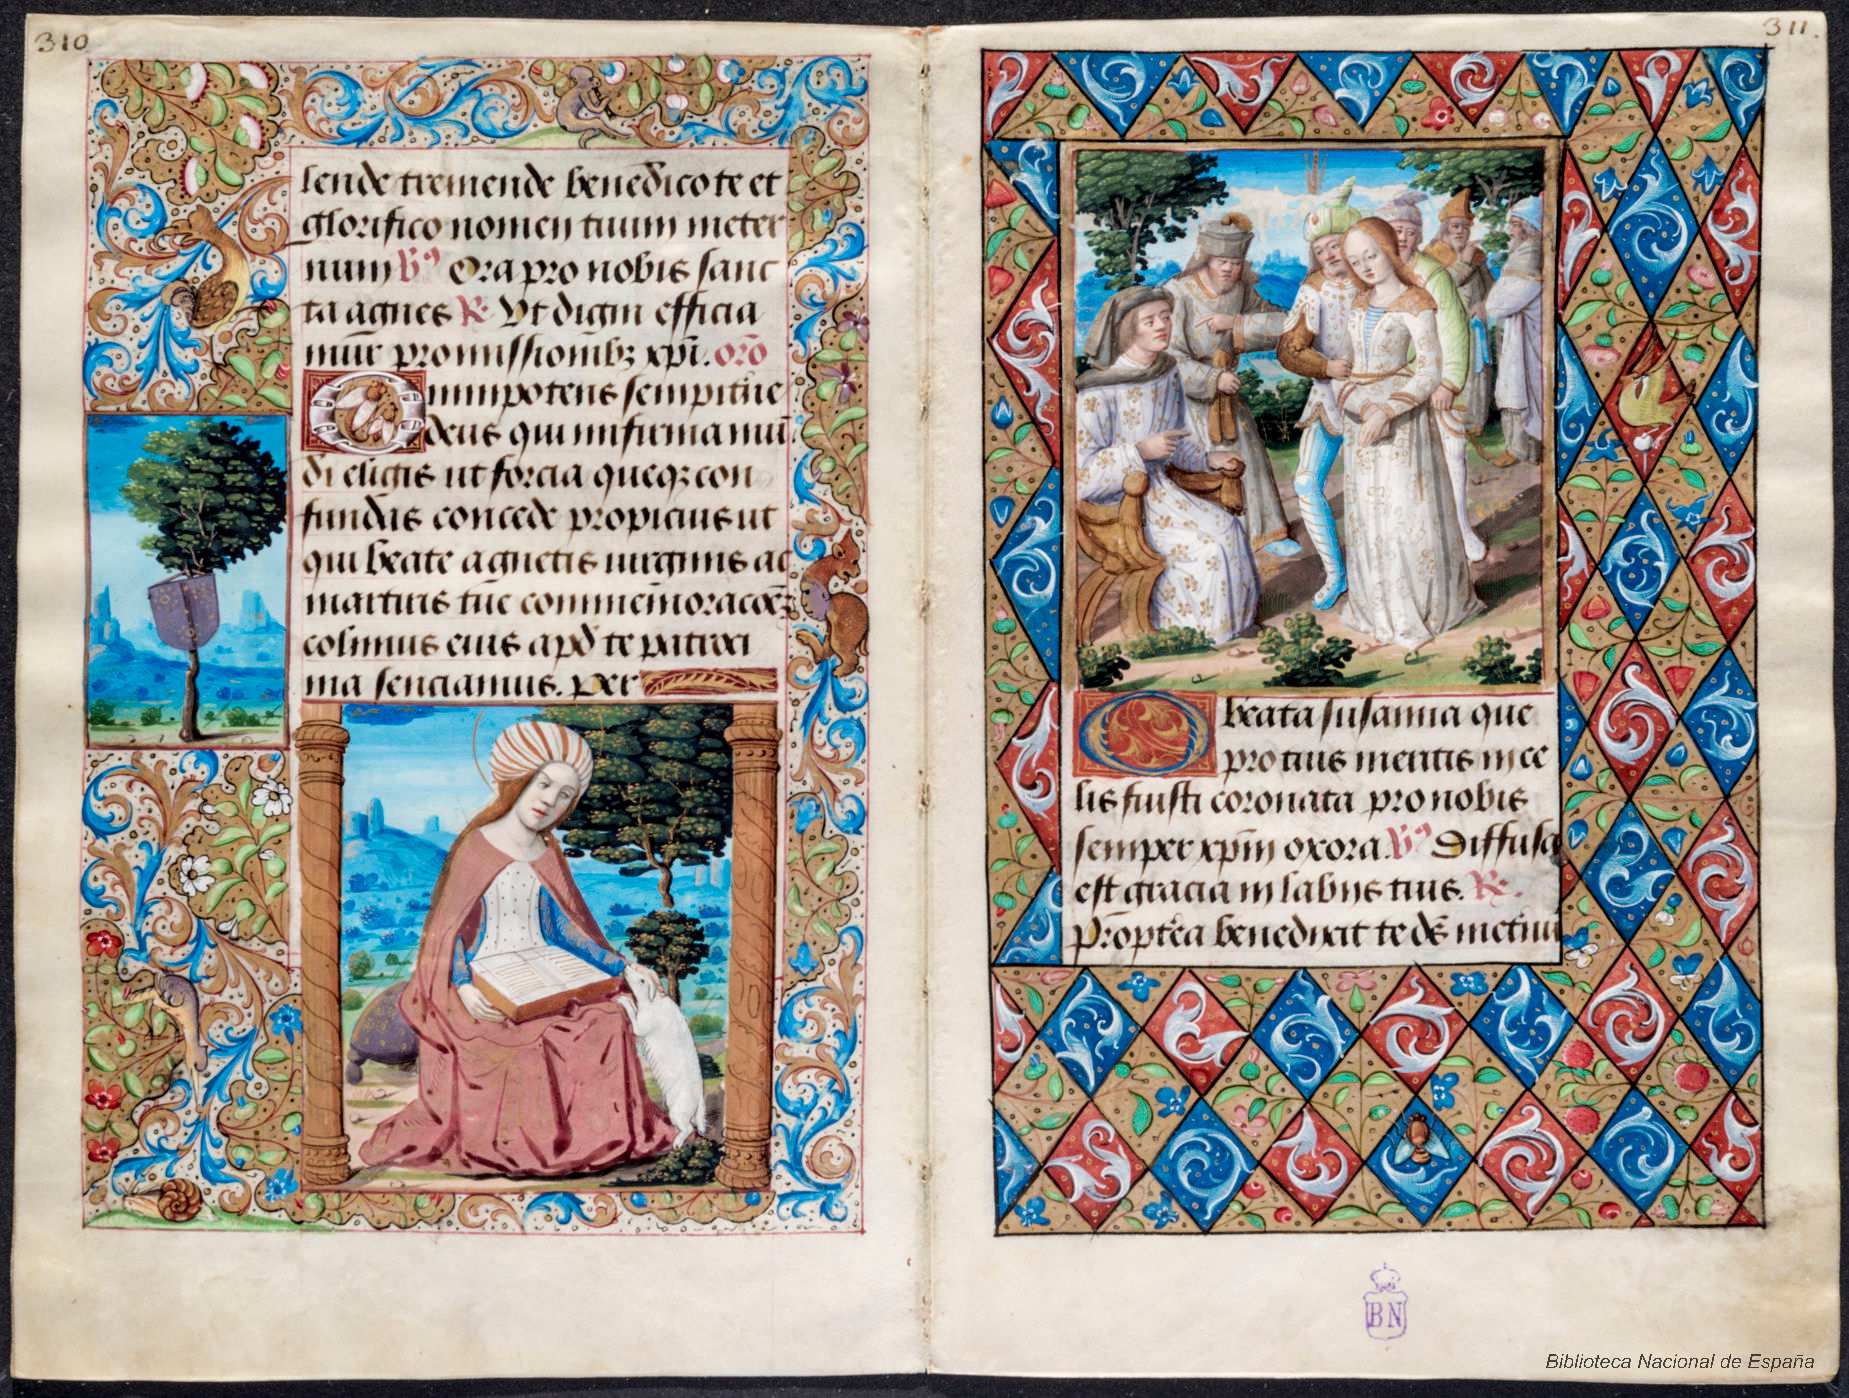 310
lende tremende benedico te et
glorifico nomen tuum in eter
num V9 Ora pro nobis sanc
ta agnes R. Vt digni efficia
mur promissionibz xpi. oro
Omnipotens sempitne
deus qui infirma mu
di eligis ut forcia queqz con
fundas concede propicius ut
qui beate agnetis uirginis ac
martiris tue commemoracoez
colimus eius apd te patroci
nia senciamus. per
311.
O beata susanna que
pro tuis meritis in ce
lis fuisti coronata pro nobis
semper xpm oxora. V9 Diffusa
est gracia in labijs tuis. R.
Proptea benedixit te ds inetnu
BN
Biblioteca Nacional de España